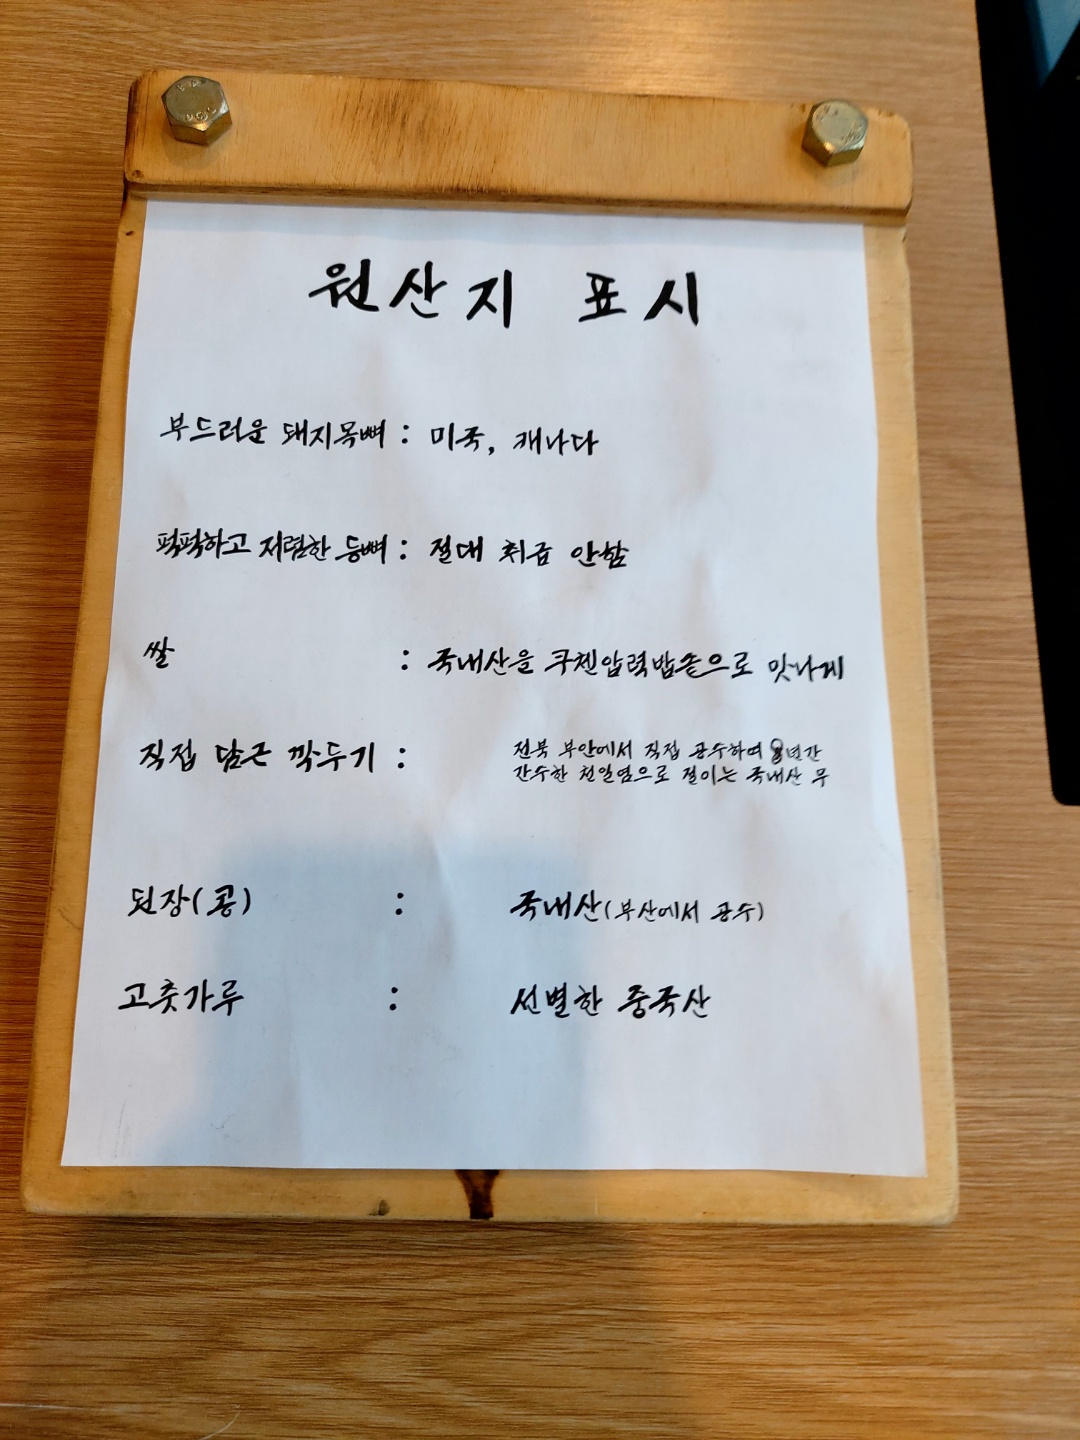 원산지 표시
부드러운 돼지목뼈 : 미국, 캐나다
퍽퍽하고 저렴한 등뼈 : 절대 취급 안함
쌀 : 국내산을 쿠첸압력밥솥으로 맛나게
직접 담근 깍두기 : 전북 부안에서 직접 공수하여 년간
간수한 천일염으로 절이는 국내산 무
된장(콩) : 국내산(부산에서 공수)
고춧가루 : 선별한 중국산